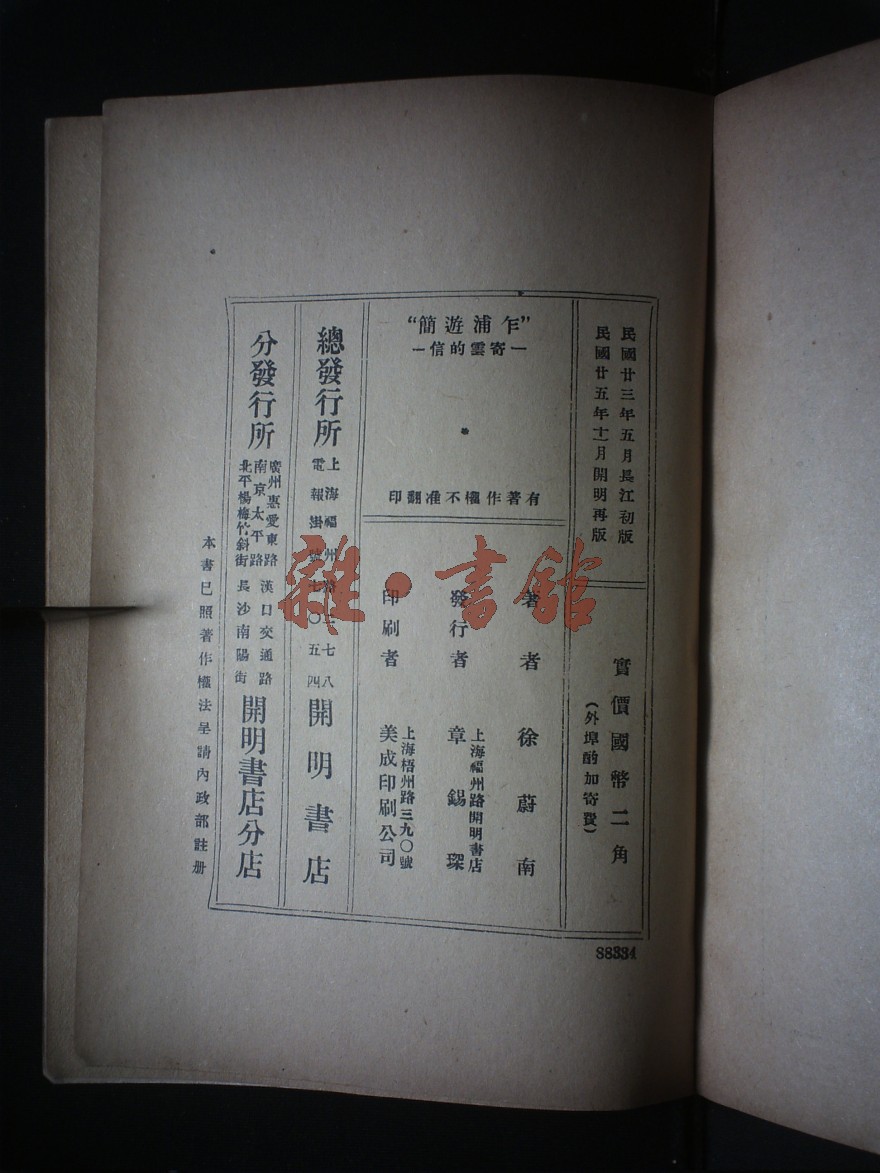 民國廿三年五月長江初版
民國廿五年十一月開明再版
實價國幣二角
（外埠酌加寄費）
“乍浦遊簡”
—寄雲的信—
有著作權不准翻印
著者 徐蔚南
發行者 章錫琛
上海福州路開明書店
印刷者 美成印刷公司
上海梧州路三九〇號
總發行所
上海福州路二七八
電報掛號七〇五四
開明書店
分發行所
廣州惠愛東路 漢口交通路
南京太平路
北平楊梅竹斜街 長沙南陽街
開明書店分店
本書已照著作權法呈請內政部註册
88334
雜·書館